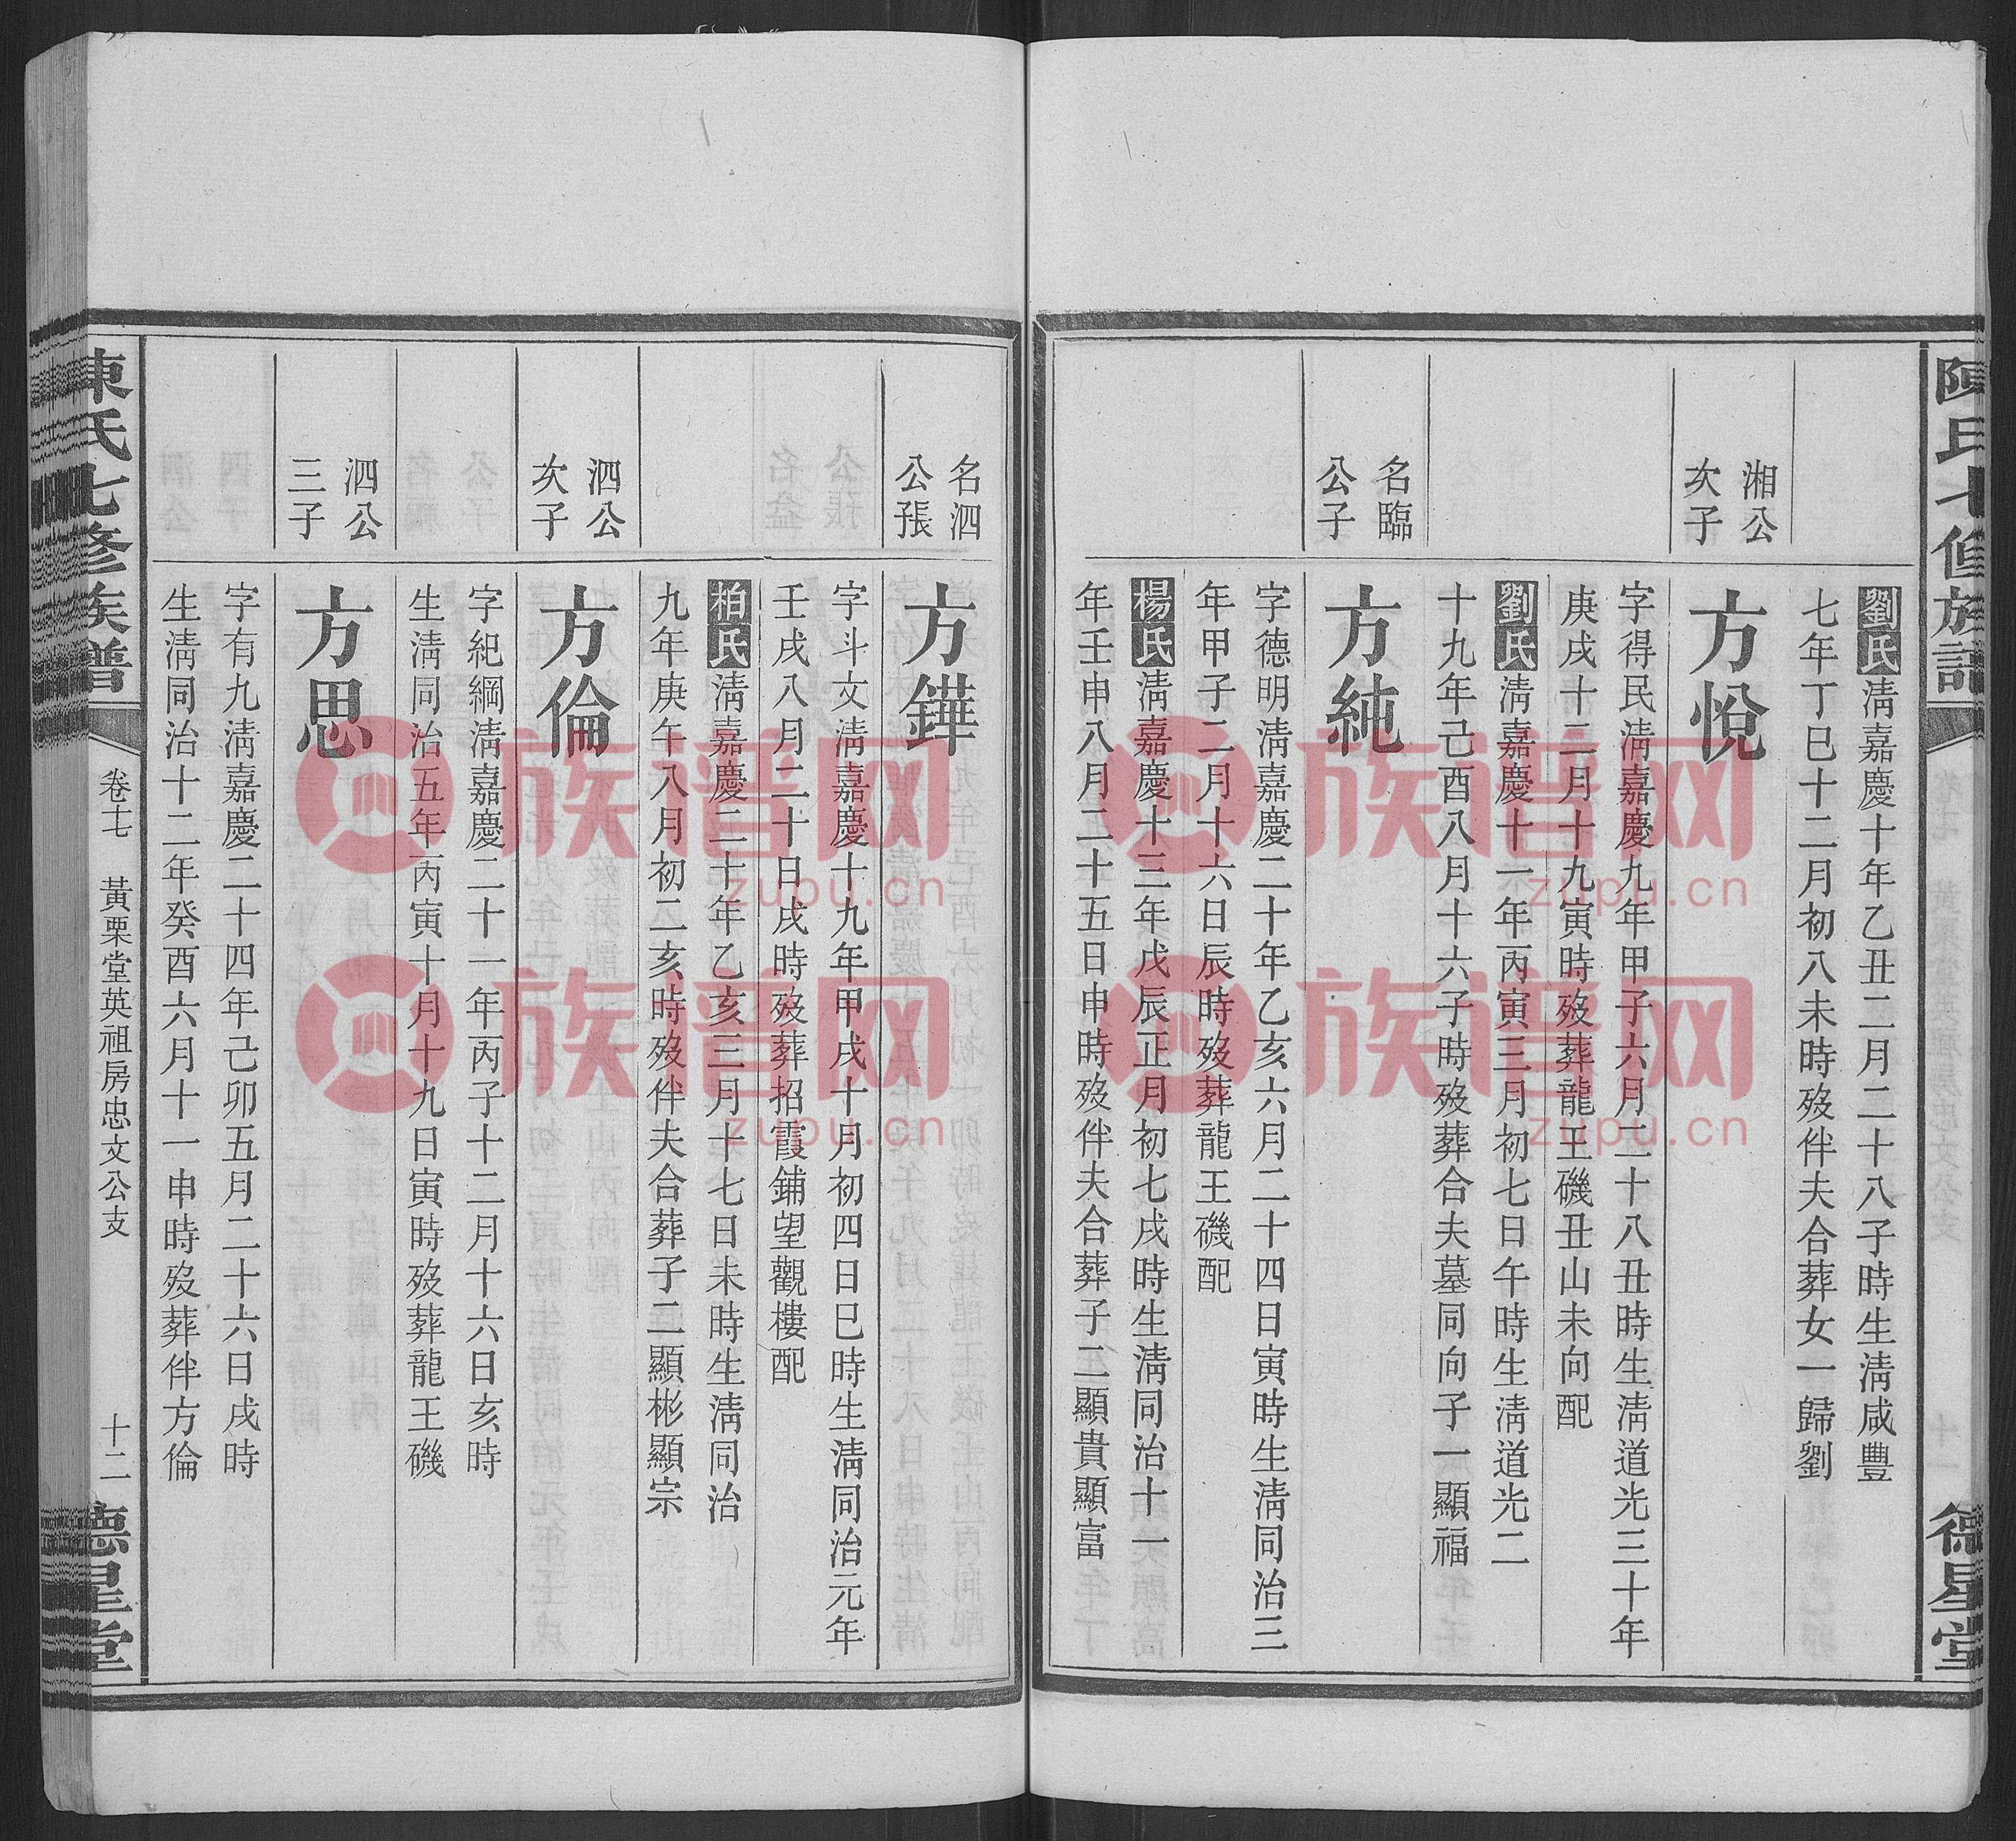 陳氏七修族譜
德星堂
劉氏淸嘉慶十年乙丑二月二十八子時生淸咸豐
七年丁巳十二月初八未時歿伴夫合葬女一歸劉
湘公
次子
方悅
字得民淸嘉慶九年甲子六月二十八丑時生淸道光三十年
庚戌十二月十九寅時歿葬龍王磯丑山未向配
劉氏淸嘉慶十一年丙寅三月初七日午時生淸道光二
十九年己酉八月十六子時歿葬合夫墓同向子一顯福
名臨
公子
方純
字德明淸嘉慶二十年乙亥六月二十四日寅時生淸同治三
年甲子二月十六日辰時歿葬龍王磯配
楊氏淸嘉慶十三年戊辰正月初七戌時生淸同治十一
年壬申八月二十五日申時歿伴夫合葬子二顯貴顯富
名泗
公張
方鏵
字斗文淸嘉慶十九年甲戌十月初四日巳時生淸同治元年
壬戌八月二十日戌時歿葬招霞鋪望觀樓配
柏氏淸嘉慶二十年乙亥三月十七日未時生淸同治
九年庚午八月初二亥時歿伴夫合葬子二顯彬顯宗
泗公
次子
方倫
字紀綱淸嘉慶二十一年丙子十二月十六日亥時
生淸同治五年丙寅十月十九日寅時歿葬龍王磯
泗公
三子
方思
字有九淸嘉慶二十四年己卯五月二十六日戌時
生淸同治十二年癸酉六月十一申時歿葬伴方倫
陳氏七修族譜
卷七
黃栗堂英祖房忠文公支
十二
德星堂
族谱网
zupu.cn
族谱网
zupu.cn
族谱网
zupu.cn
族谱网
zupu.cn